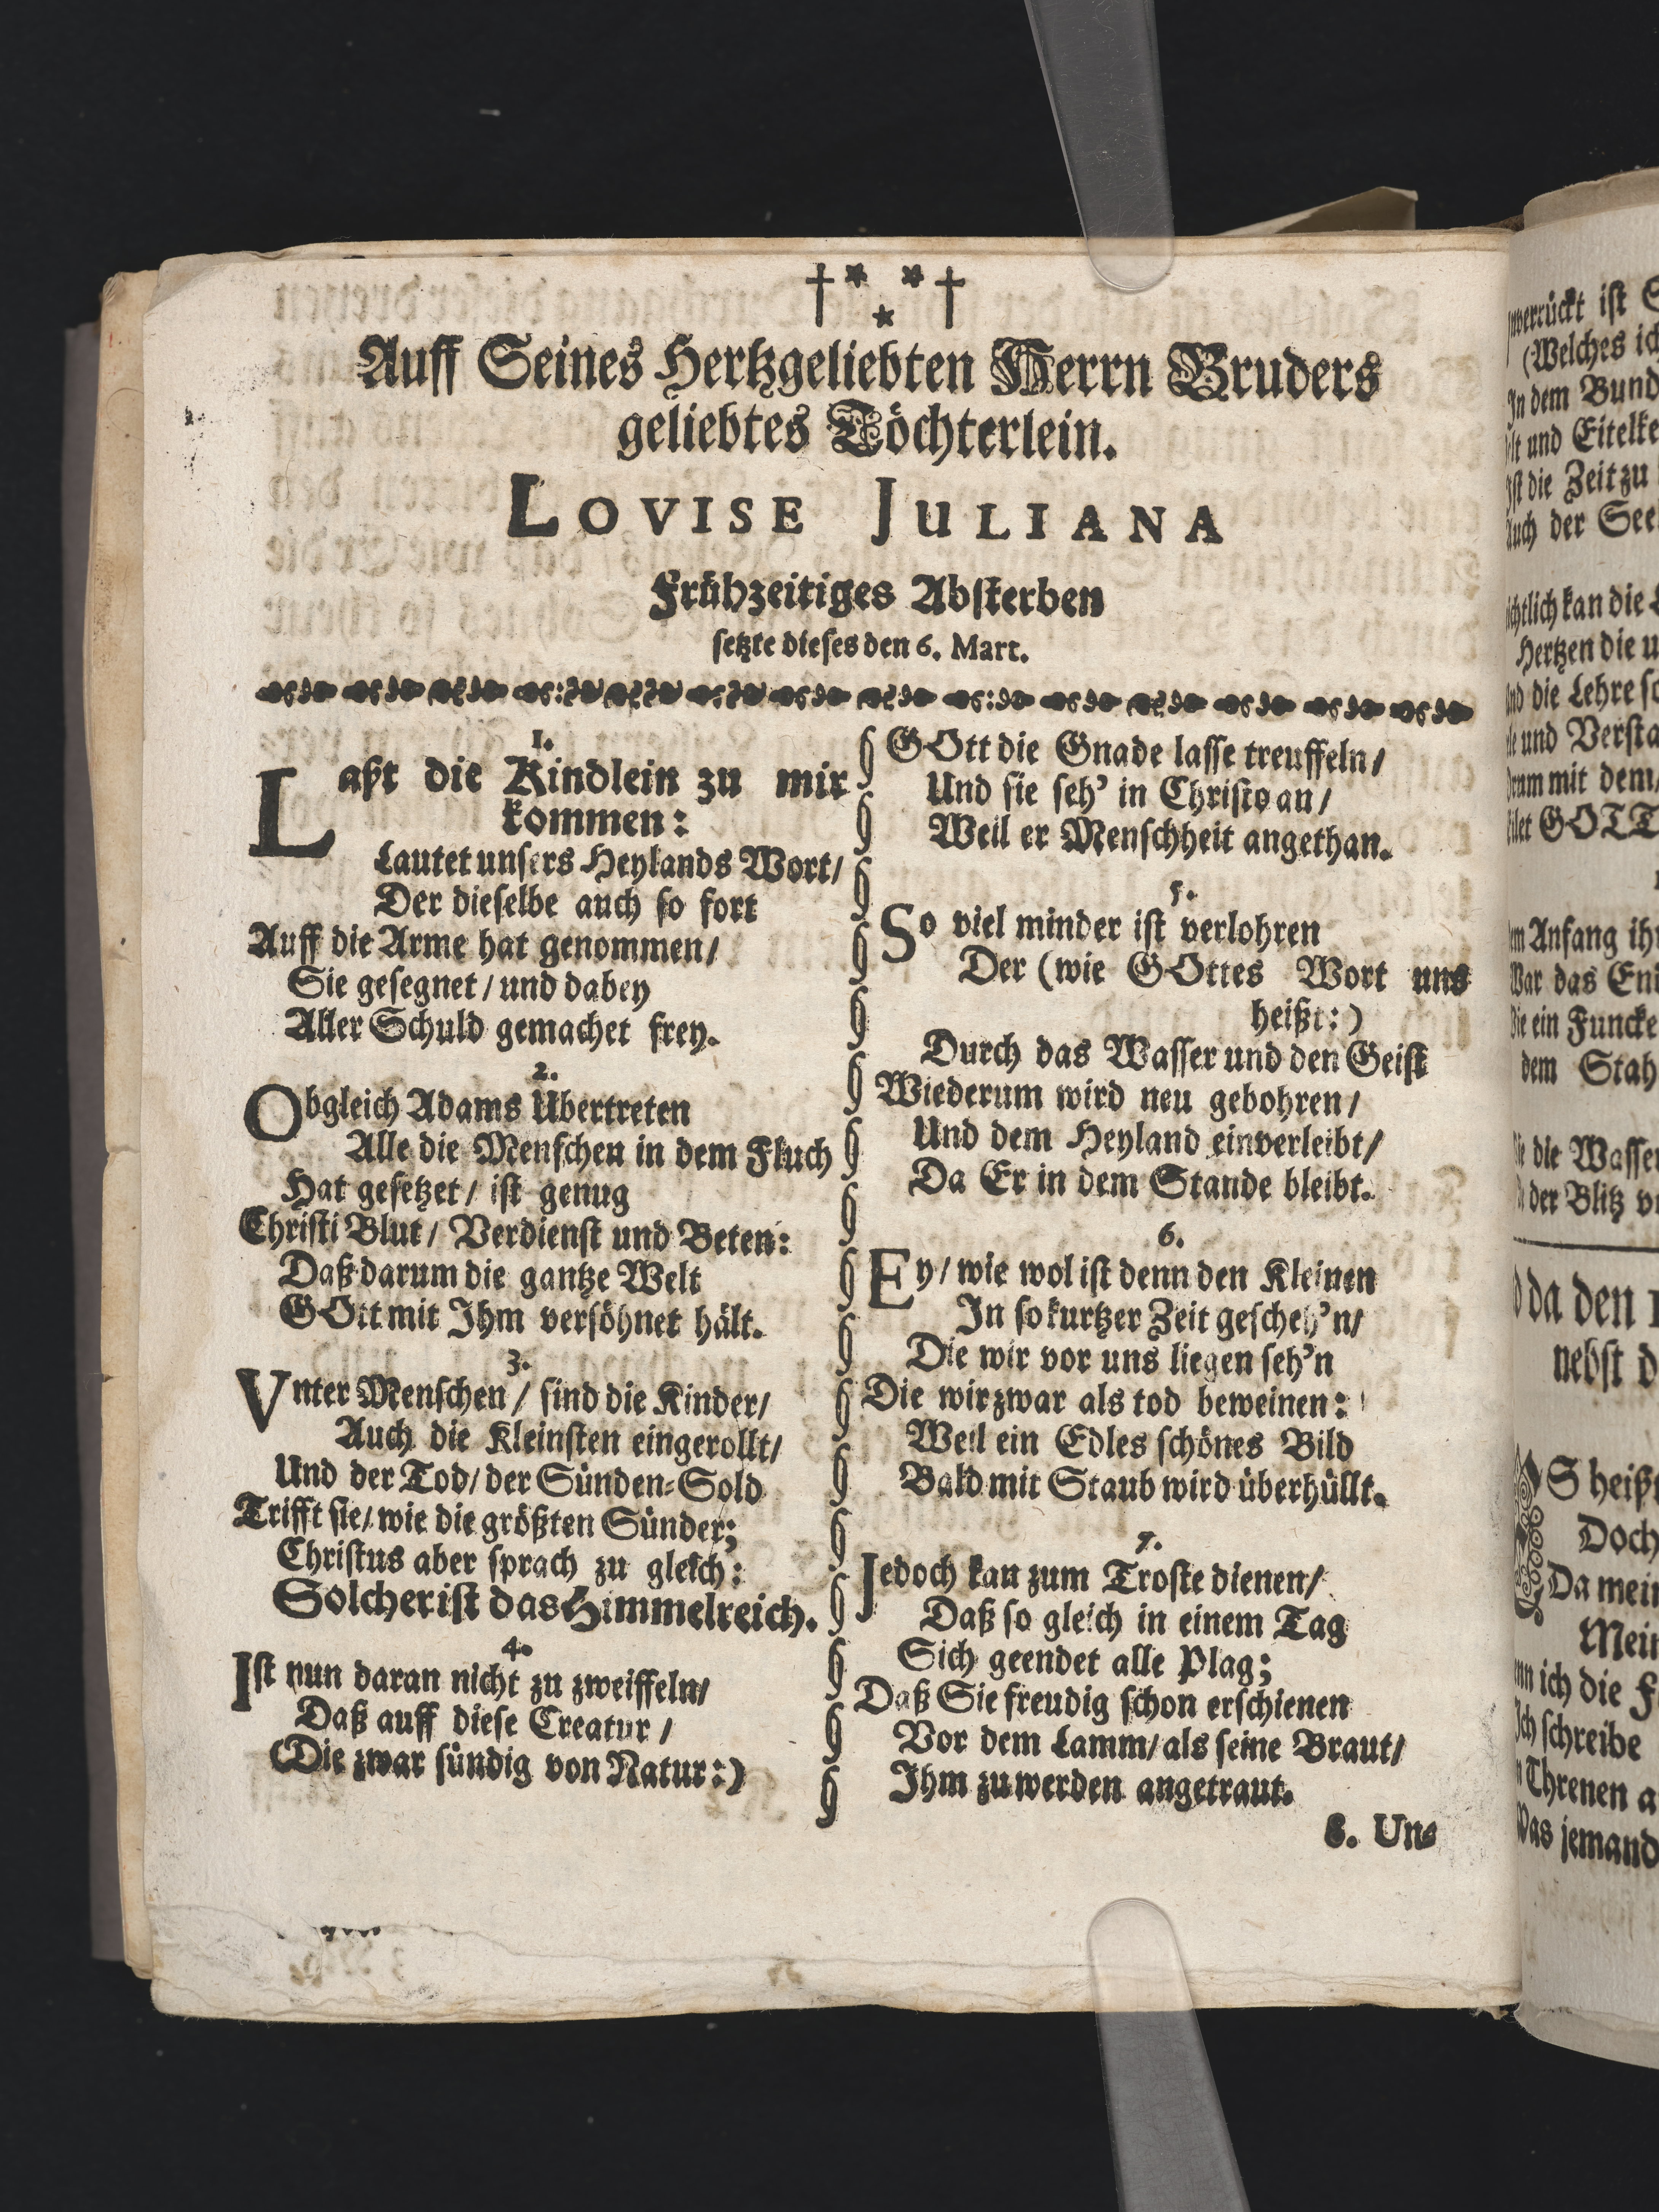 Auff Seines Hertzgeliebten Herrn Bruders
geliebtes Töchterlein.
LOVISE JULIANA
Frühzeitiges Absterben
setzte dieses den 6. Mart.
1.
Laßt die Kindlein zu mir
kommen:
Lautet unsers Heylands Wort/
Der dieselbe auch so fort
Auff die Arme hat genommen/
Sie gesegnet/ und dabey
Aller Schuld gemachet frey.
2.
Obgleich Adams Übertreten
Alle die Menschen in dem Fluch
Hat gesetzet/ ist genug
Christi Blut/ Verdienst und Beten:
Daß darum die gantze Welt
GOtt mit Ihm versöhnet hält.
3.
Vnter Menschen/ sind die Kinder/
Auch die Kleinsten eingerollt/
Und der Tod/ der Sünden-Sold
Trifft sie/ wie die größten Sünder;
Christus aber sprach zu gleich:
Solcher ist das Himmelreich.
4.
Ist nun daran nicht zu zweiffeln/
Daß auff diese Creatur/
(Die zwar sündig von Natur:)
GOtt die Gnade lasse treuffeln/
Und sie seh' in Christo an/
Weil er Menschheit angethan.
5.
So viel minder ist verlohren
Der (wie GOttes Wort uns
heißt:)
Durch das Wasser und den Geist
Wiederum wird neu gebohren/
Und dem Heyland einverleibt/
Da Er in dem Stande bleibt.
6.
Ey/ wie wol ist denn den Kleinen
In so kurtzer Zeit gescheh'n/
Die wir vor uns liegen seh'n
Die wir zwar als tod beweinen:
Weil ein Edles schönes Bild
Bald mit Staub wird überhüllt.
7.
Jedoch kan zum Troste dienen/
Daß so gleich in einem Tag
Sich geendet alle Plag;
Daß Sie freudig schon erschienen
Vor dem Lamm/ als seine Braut/
Ihm zu werden angetraut.
8. Un-
ist
(Welches
In dem Bund
und
die Zeit zu
der
kan die
Hertzen die
die Lehre
und
mit dem/
GOTT
Anfang
das
ein Funcke
dem Stah
die Wasser
der Blitz
da den
nebst
heißt
Doch
Da mein
ich die
schreibe
Threnen
jemand